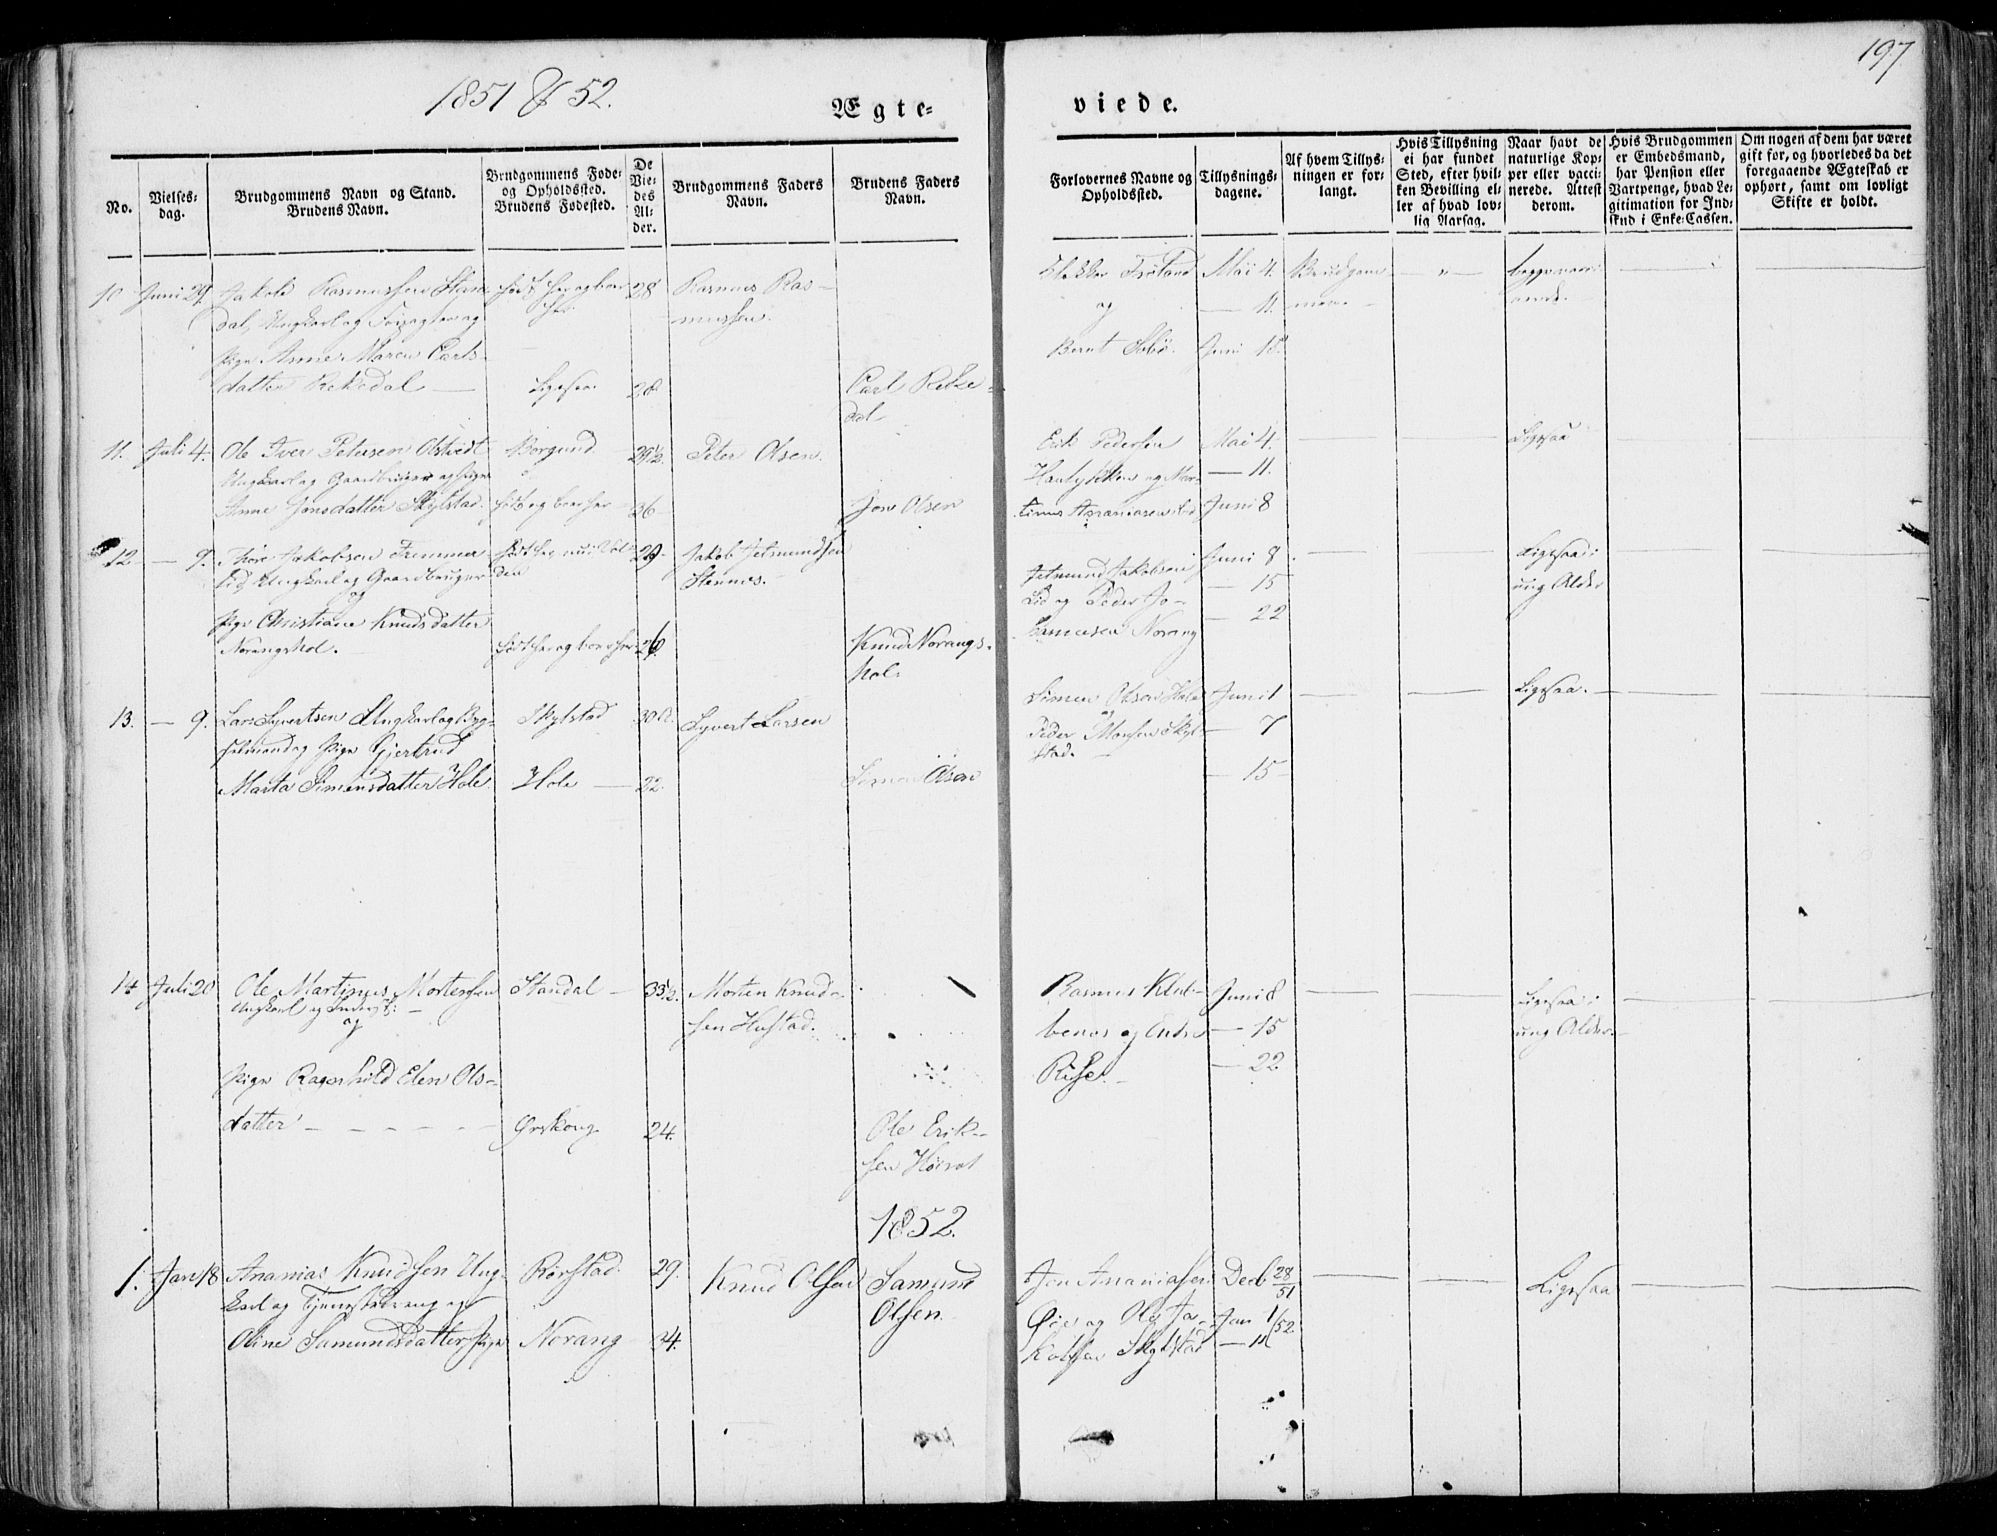 197
1851 & 52.
Ægte=
viede.
No.
Vielses=
dag.
Brudgommens Navn og Stand.
Brudens Navn.
Brudgommens Føde=
og Opholdssted.
Brudens Fødested.
De
Vie=
des
Al=
der.
Brudgommens Faders
Navn.
Brudens Faders
Navn.
Forlovernes Navne og
Opholdssted.
Tillysnings=
dagene.
Af hvem Tillys=
ningen er for=
langt.
Hvis Tillysning
ei har fundet
Sted, efter hvil=
ken Bevilling el=
ler af hvad lov=
lig Aarsag.
Naar havt de
naturlige Kop=
per eller vacci=
nerede. Attest
derom.
Hvis Brudgommen
er Embedsmand,
har Pension eller
Vartpenge, hvad Le=
gitimation for Ind=
skud i Enke=Cassen.
Om nogen af dem har været
gift for, og hvorledes da det
foregaaende Ægteskab er
ophørt, samt om lovligt
Skifte er holdt.
10 Juni 29. Jakob Rasmussen Stan-
dal, Ungkarl og
født her og boer
her
28
Rasmus Ras-
mussen.
og
Bernt Sæbø.
Mai 4.
— 11.
Juni 15.
Brudgom-
men
begge vacci-
Pige Anne Maren Carls-
datter Rekedal
Ligesaa.
28
Carl Reke-
dal
11. Juli 4. Ole Iver Petersen
Ungkarl og Gaardbruger og Pige
Anne Jonsdatter Skylstad.
Borgund
født og boer her
29 1/2
26
Peter Olsen.
Jon Olsen
Erik Pedersen
og Mar-
tinus
Mai 4.
— 11.
Juni 8
Ligesaa
12 — 9. Jakobsen Fremmer-
lid, Ungkarl og Gaardbruger
og
Pige Christiane Knudsdatter
Norangshol.
født her og boer her
29
26
Jakob Jetmundsen
Stennes.
Knud Norangs-
hol.
Jetmund Jakobsen
Lid og Peder
Norang
Juni 8
— 15
— 22
Ligesaa:
ung Alder
13. — 9. Lars Syvertsen Ungkarl og Byg-
selmand og Pige Gjertrud
Marta Simensdatter Hole
Skylstad
Hole
22
Syvert Larsen
Simen Olsen
Simen Olsen Hole
og
Peder Monsen Skyl-
stad.
Juni 1
— 7
— 15
Ligesaa.
14 Juli 20 Ole Martinus Mortensen
Ungkarl og
og
Pige Ragnhild Elen Ols-
datter
Standal
Ørskoug
33 1/2.
24.
Morten Knud-
sen Hustad.
Ole Erik-
sen
Rasmus Klub-
benes og Endre
Rise.
Juni 8
— 15
— 22
Ligesaa:
ung Alder.
1852.
1. Jan 18 Ananias Knudsen Ung-
karl og Tjenestedreng og
Oline Samundsdatter Pige
Rørstad.
Norang
29.
34.
Knud Olsen
Samund
Olsen.
Jon Ananiassen
Øie og Ole Ja-
kobsen Skylstad
Decb 28/51
Jan 1/52
— 11
Ligesaa